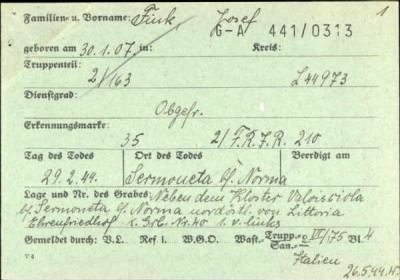 1
Familien- u. Vorname: Fink, Josef
G-A 441/0313
geboren am 30.1.07 in: Kreis:
Truppenteil:
2/163 L44973
Dienstgrad:
Obgefr.
Erkennungsmarke:
35 2/F.R.J.R. 210
Tag des Todes Ort des Todes Beerdigt am
29.2.44. Sermoneta b/ Norma
Lage und Nr. des Grabes: Neben dem Kloster
b/ Sermoneta b/ Norma nordöstl. von Littoria
Ehrenfriedhof Grb. Nr. 40 1. v. links
Gemeldet durch: V.L. Ref i. W.G.O. Wast- Trupp.- San.- VII/75 Bl. 4
Italien
V 4 26.5.44.